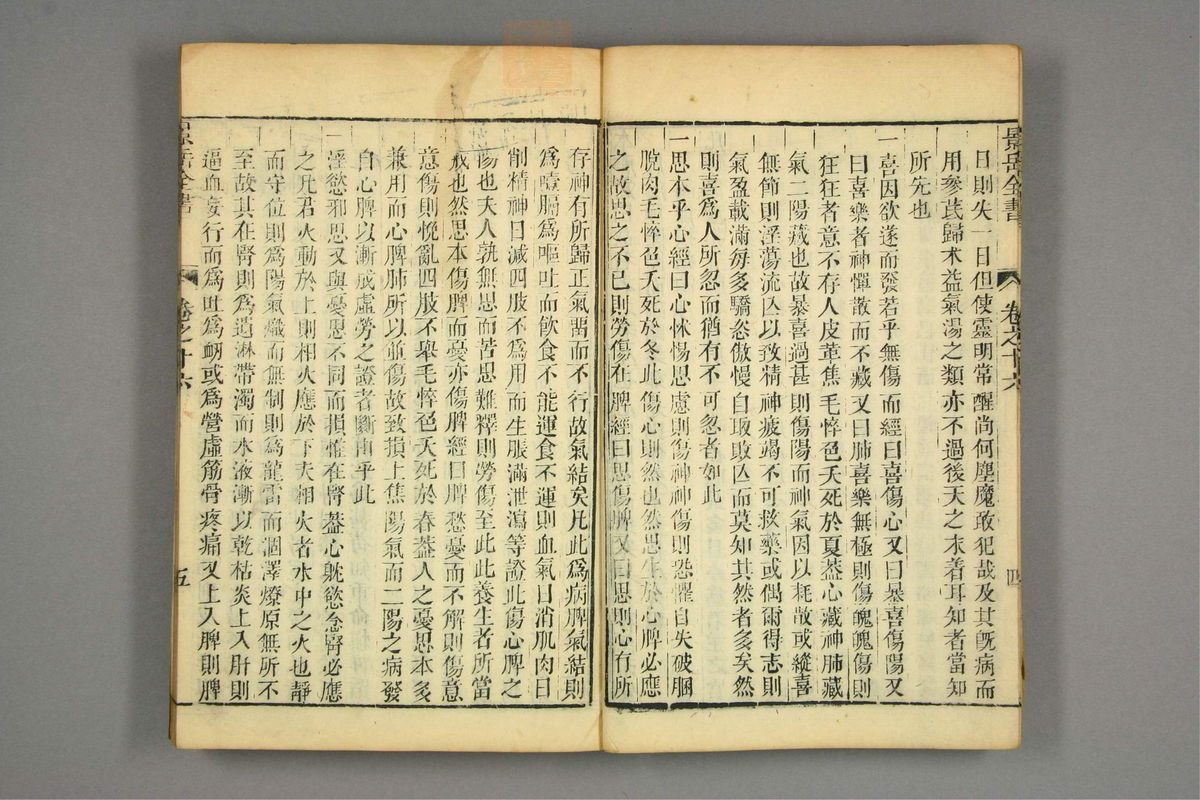 景岳全書
卷之十六
四
日則失一日但使靈明常醒尚何塵魔敢犯哉及其旣病而
用參芪歸朮益氣湯之類亦不過後天之末着耳知者當知
所先也
一喜因欲遂而發若乎無傷而經曰喜傷心又曰暴喜傷陽又
曰喜樂者神憚散而不藏又曰肺喜樂無極則傷魄魄傷則
狂狂者意不存人皮革焦毛悴色夭死於夏葢心藏神肺藏
氣二陽藏也故暴喜過甚則傷陽而神氣因以耗散或縱喜
無節則淫蕩流亾以致精神疲竭不可救藥或偶爾得志則
氣盈載滿每多驕恣傲慢自取敗亾而莫知其然者多矣然
則喜爲人所忽而猶有不可忽者如此
一思本乎心經曰心怵惕思慮則傷神神傷則恐懼自失破䐃
脫肉毛悴色夭死於冬此傷心則然也然思生於心脾必應
之故思之不已則勞傷在脾經曰思傷脾又曰思則心有所
存神有所歸正氣畱而不行故氣結矣凡此爲病脾氣結則
爲噎膈爲嘔吐而飮食不能運食不運則血氣日消肌肉日
削精神日減四肢不爲用而生脹滿泄瀉等證此傷心脾之
傷也夫人孰無思而苦思難釋則勞傷至此此養生者所當
戒也然思本傷脾而憂亦傷脾經曰脾愁憂而不解則傷意
意傷則悗亂四肢不舉毛悴色夭死於春葢人之憂思本多
兼用而心脾肺所以並傷故致損上焦陽氣而二陽之病發
自心脾以漸成虛勞之證者斷由乎此
一淫慾邪思又與憂思不同而損惟在腎葢心躭慾念腎必應
之凡君火動於上則相火應於下夫相火者水中之火也靜
而守位則爲陽氣熾而無制則爲龍雷而涸澤燎原無所不
至故其在腎則爲遺淋帶濁而水液漸以乾枯炎上入肝則
逼血妄行而爲吐爲衄或爲營虛筋骨疼痛又上入脾則脾
景岳全書
卷之十六
五